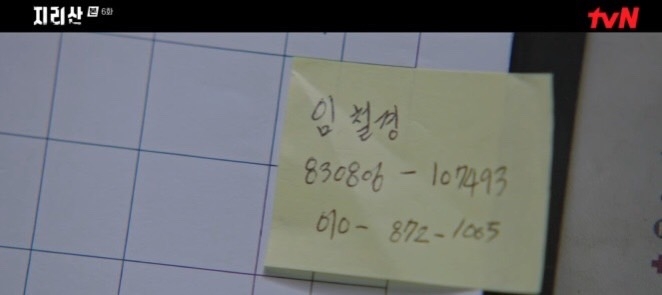 지리산 본 6화
tvN
임철경
830806-107493
010-872-1005